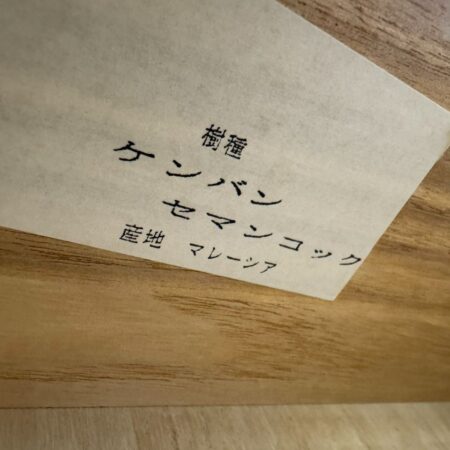 樹種
ケンバン
セマンコック
産地 マレーシア